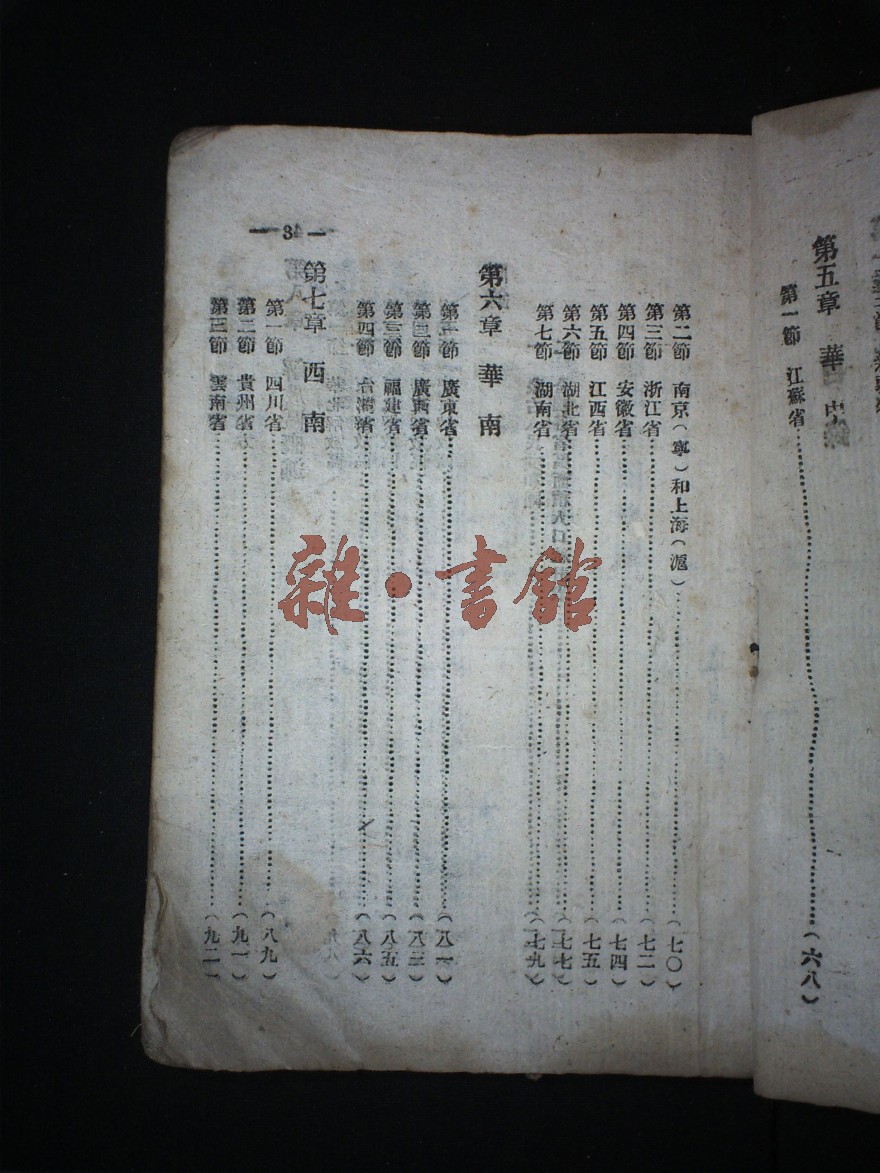 第五章 華中
第一節 江蘇省……(六八)
第二節 南京(寧)和上海(滬)……(七〇)
第三節 浙江省……(七二)
第四節 安徽省……(七四)
第五節 江西省……(七五)
第六節 湖北省……(七七)
第七節 湖南省……(七九)
第六章 華南
第一節 廣東省……(八一)
第二節 廣西省……(八三)
第三節 福建省……(八五)
第四節 台灣省……(八六)
第七章 西南
第一節 四川省……(八九)
第二節 貴州省……(九一)
第三節 雲南省……(九二)
— 3 —
雜·書館